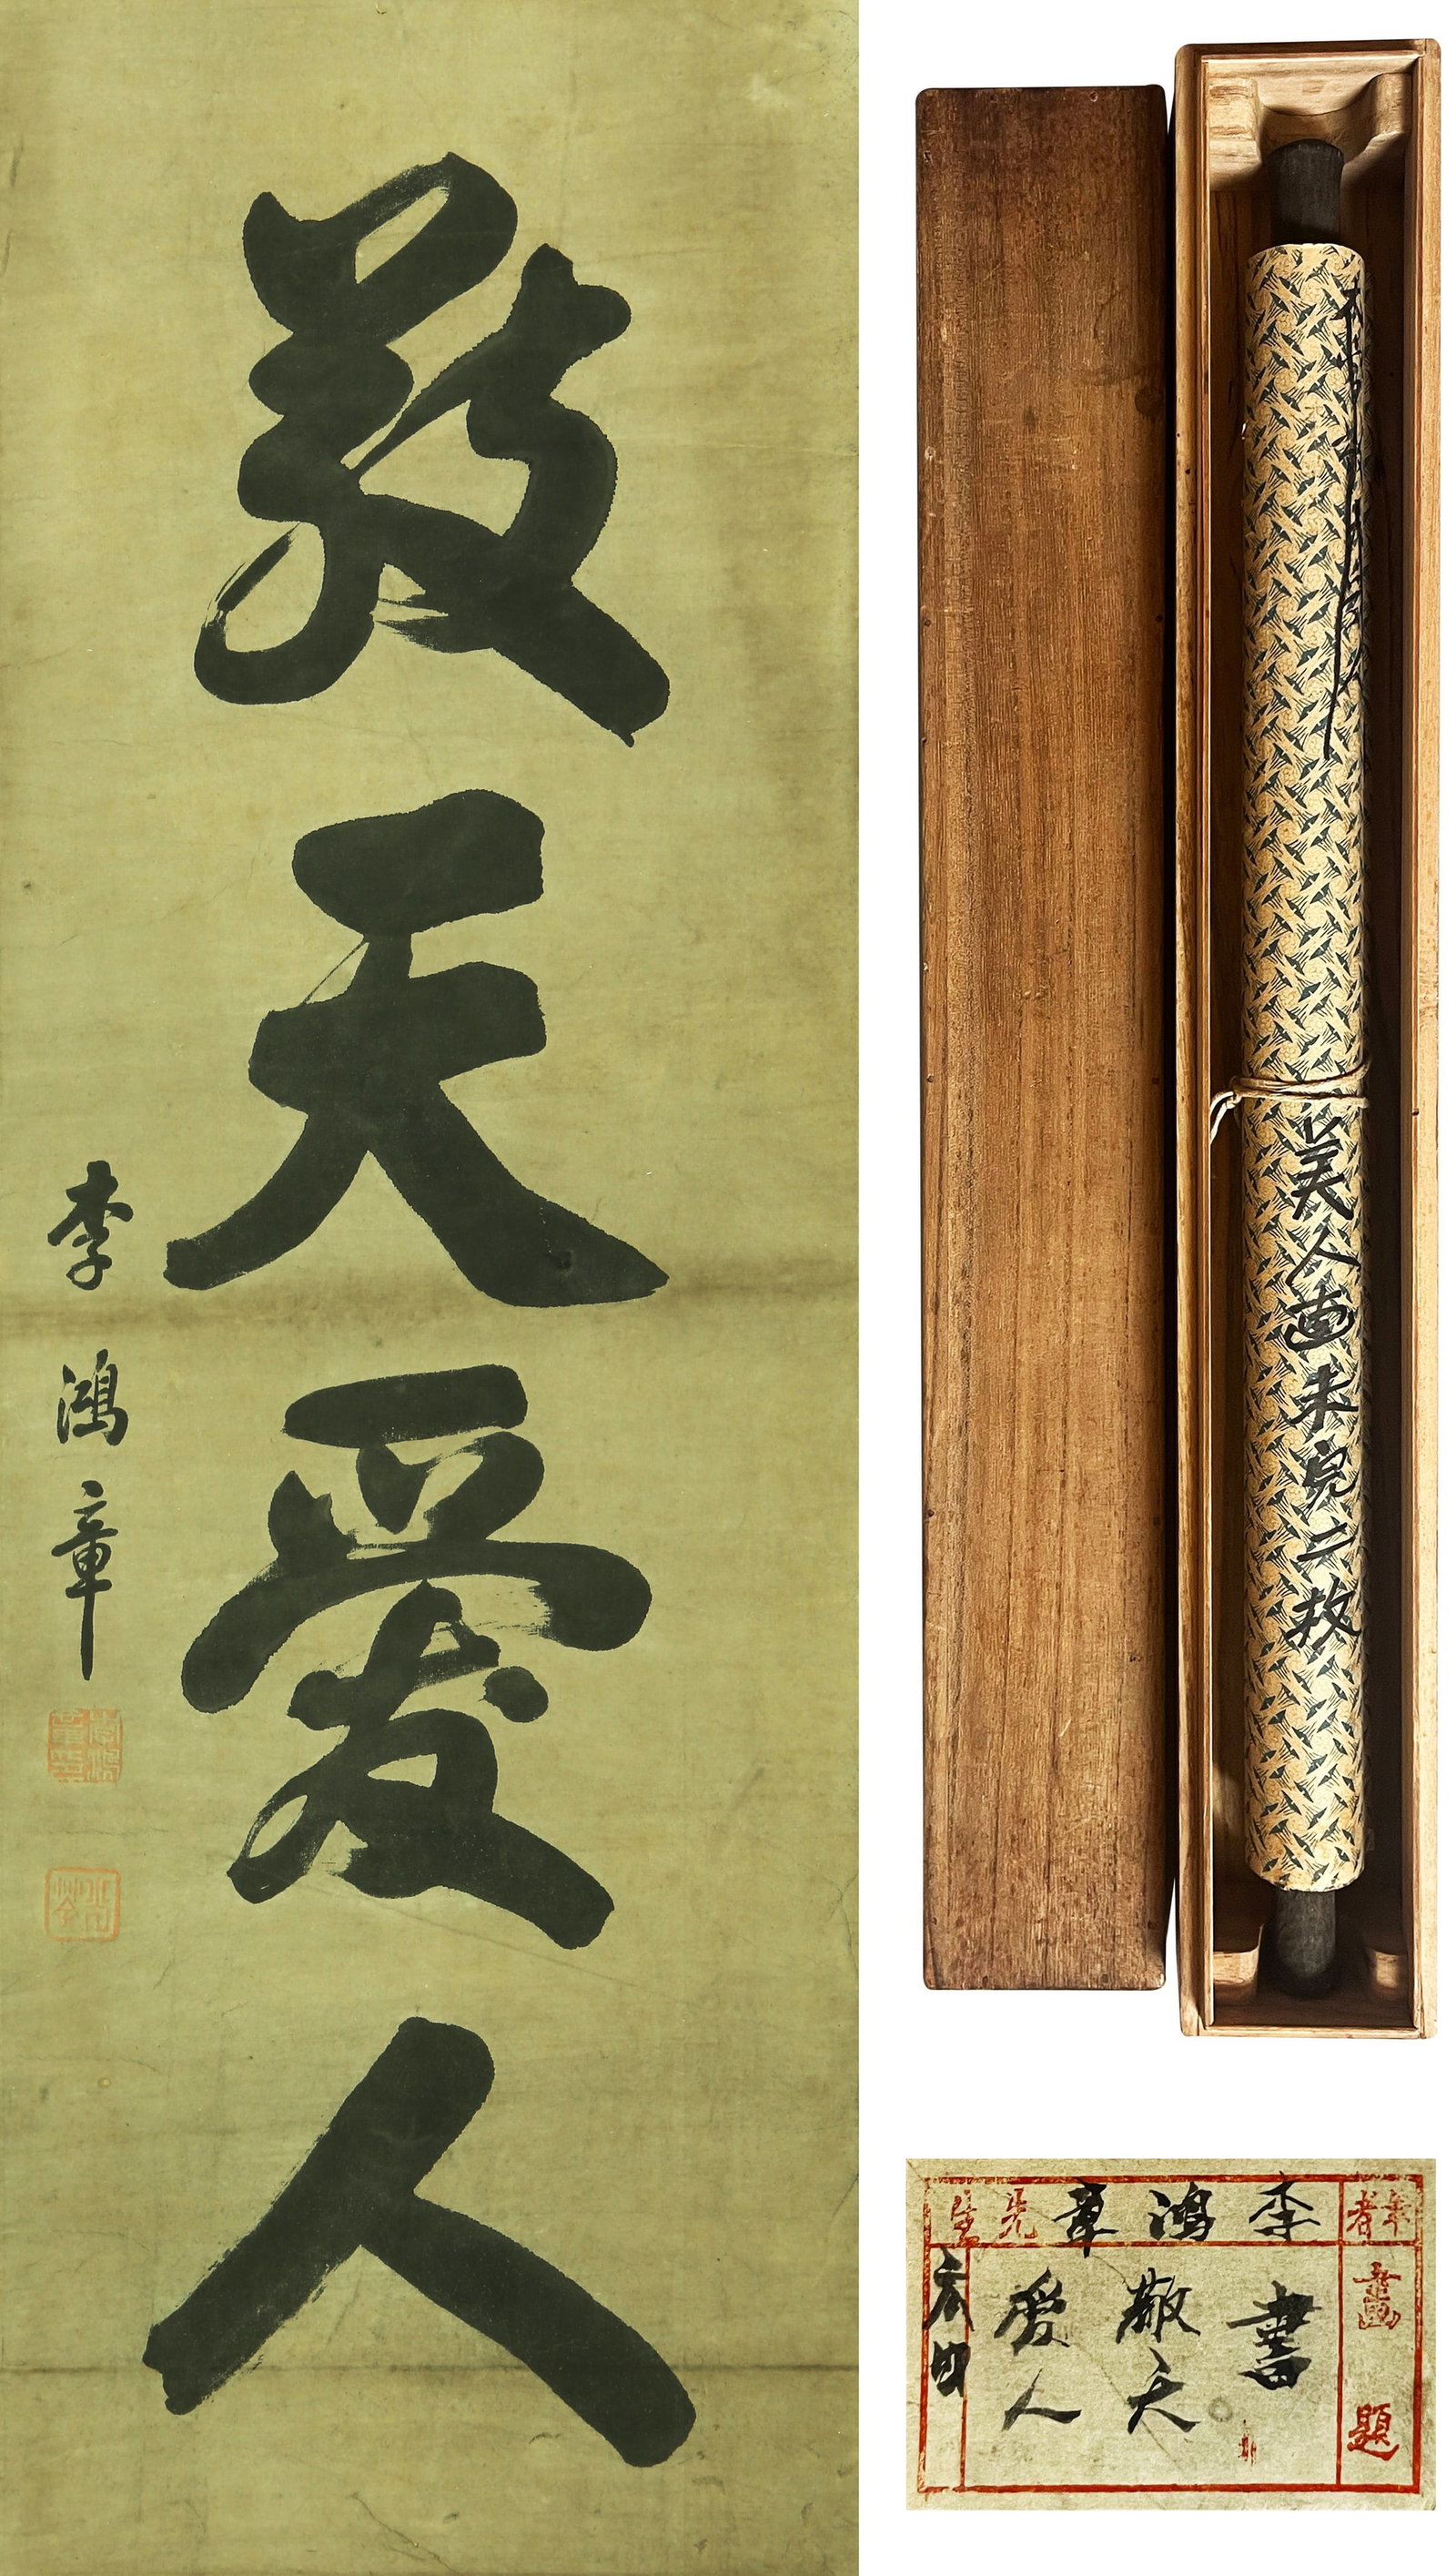 敬天愛人
李鴻章
美人画未完二枚
筆者
李鴻章先生
畫題
書
敬天
愛人